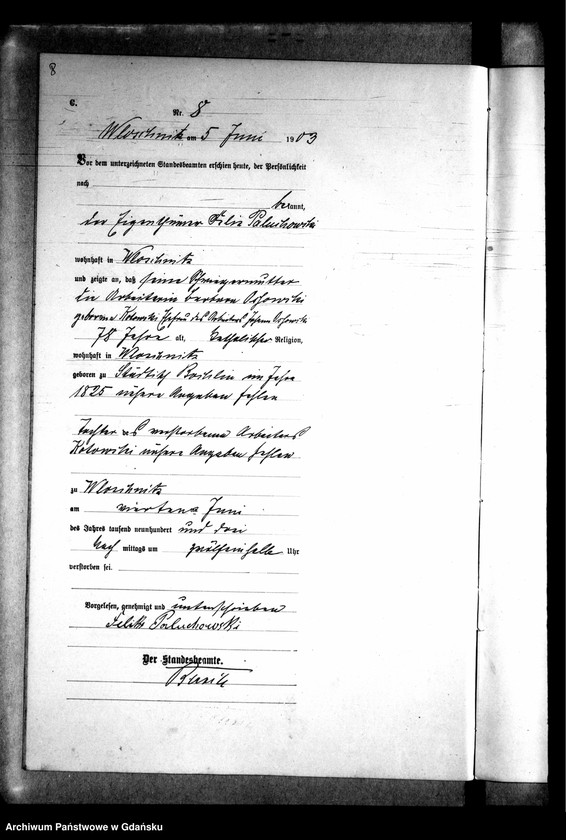 8
C.
Nr. 8
Wloschnitz am 5 Juni 1903
Vor dem unterzeichneten Standesbeamten erschien heute, der Persönlichkeit
nach
bekannt,
der Eigenthümer Felix Paluchowski
wohnhaft in Wloschnitz
und zeigte an, daß seine Schwiegermutter
die Arbeiterin Barbara
geborene Kotowski Ehefrau des Arbeiters Johann
78 Jahre alt, katholischer Religion,
wohnhaft in Wloschnitz
geboren zu im Jahre
1825 nähere Angaben fehlen
Tochter des verstorbenen Arbeiters
Kotowski nähere Angaben fehlen
zu Wloschnitz
am vierten Juni
des Jahres tausend neunhundert und drei
Nach mittags um zwölfeinhalb Uhr
verstorben sei.
Vorgelesen, genehmigt und unterschrieben
Feliks Paluchowski
Der Standesbeamte.
Archiwum Państwowe w Gdańsku